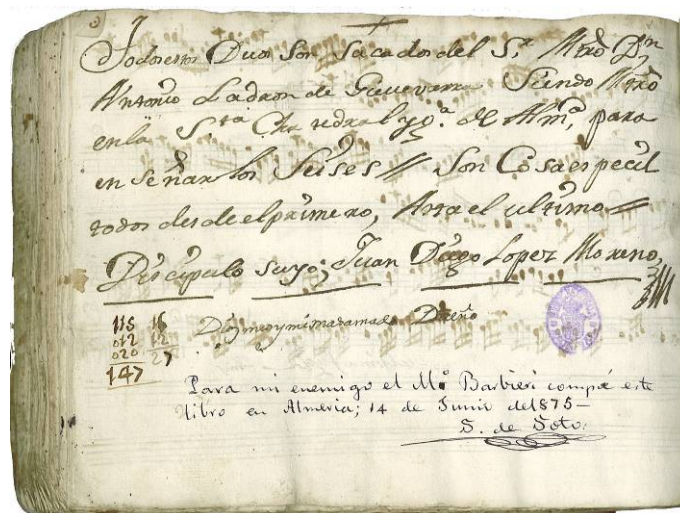 Todos estos Duos Son Sacados del Sr Mtro Dn
Antonio Ladron de Guevarra Siendo Mtro
en la Sta Cathedral Yga. de Alma, para
enseñar los Seises // Son Cosa especil
todos desde el primero, Asta el ultimo =
Discipulo suyo; Juan Diego Lopez Moreno,
115 16
012 12
020 27
147
Dueño
Para mi enemigo el Mo Barbieri compré este
libro en Almeria; 14 de Junio del 875 –
S. de Soto.